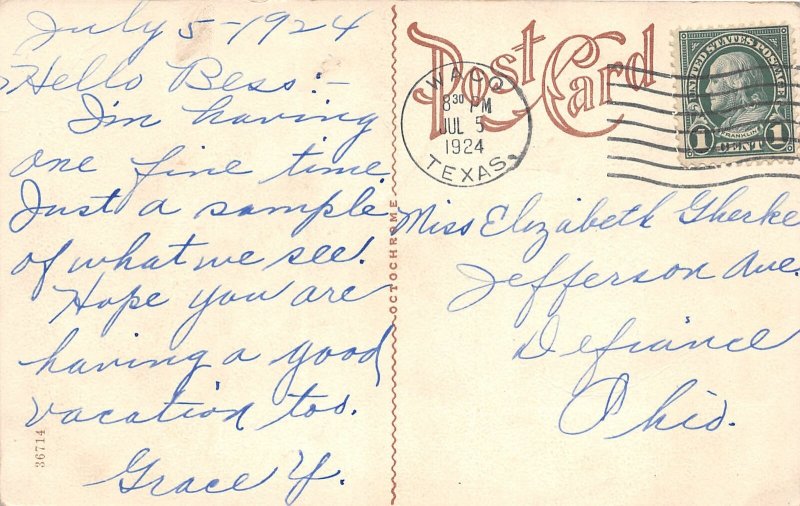 July 5-1924
Hello Bess:-
I'm having
one fine time.
Just a sample
of what we see.
Hope you are
having a good
vacation too.
Grace Y.
36714
OCTOCHROME
Post Card
WACO
8 30 PM
JUL 5
1924
TEXAS.
UNITED STATES POSTAGE
FRANKLIN
1 CENT 1
Miss Elizabeth Gherke
Jefferson Ave.
Defiance
Ohio.